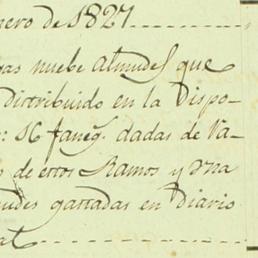 nero de 1827
gas nuebe Almudes que
distribuido en la Dispo-
: 16 faneg. dadas de Va-
o de estos Ramos y una
udes gastadas en diario
at